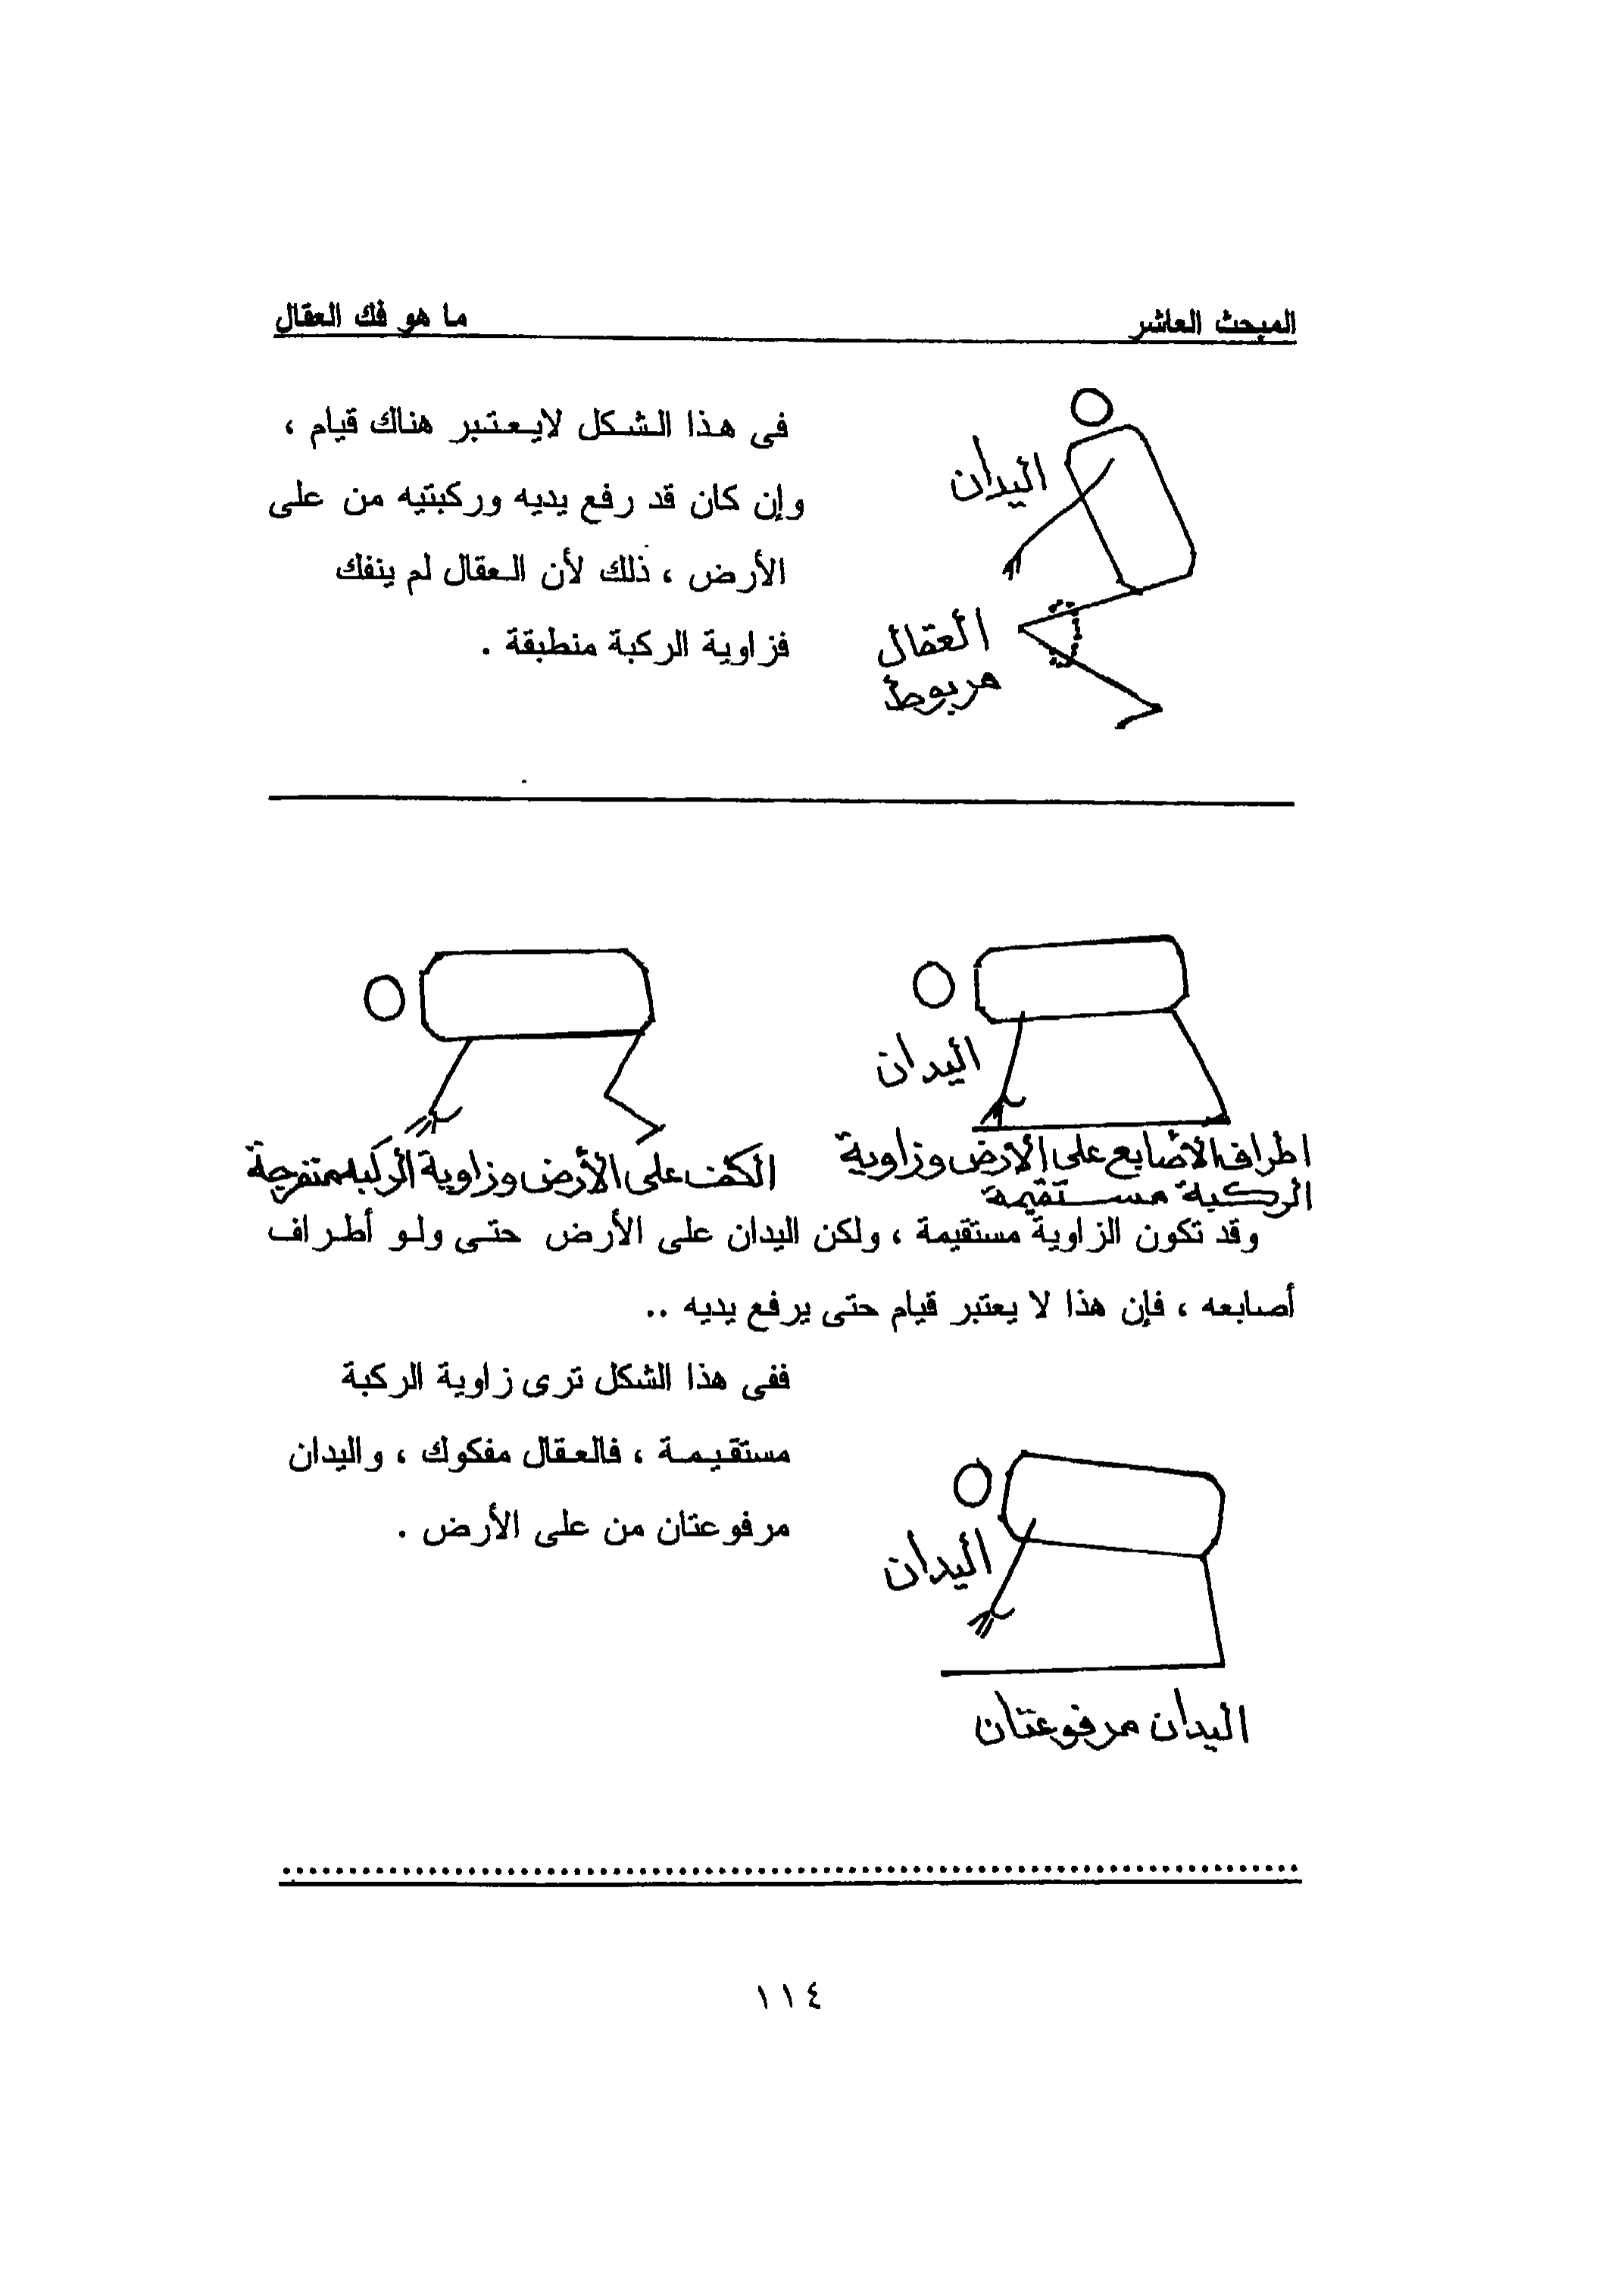 المبحث العاشر
ما هو فك العقال
فى هذا الشكل لايعتبر هناك قيام ،
وإن كان قد رفع يديه وركبتيه من على
الأرض ، ذلك لأن العقال لم ينفك
فزاوية الركبة منطبقة .
اليدان
العقال
مربوط
اليدان
اطراف الأصابع على الارض وزاوية
الركبة مستقيمة
الكف على الأرض وزاوية الركبه منفرجة
وقد تكون الزاوية مستقيمة ، ولكن اليدان على الأرض حتى ولو أطراف
أصابعه ، فإن هذا لا يعتبر قيام حتى يرفع يديه ..
ففى هذا الشكل ترى زاوية الركبة
مستقيمة ، فالعقال مفكوك ، واليدان
مرفوعتان من على الأرض .
اليدان
اليدان مرفوعتان
١١٤